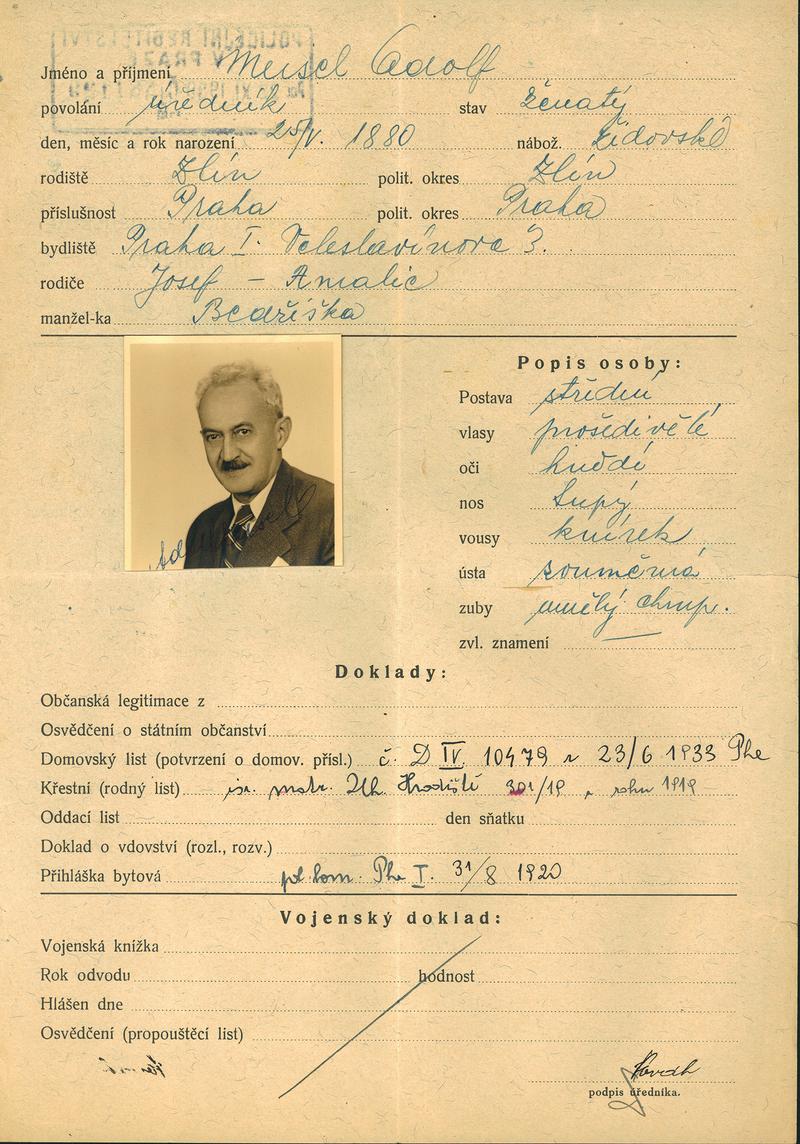 Jméno a příjmení Meisel Adolf
povolání úředník stav ženatý
den, měsíc a rok narození 25/V. 1880 nábož. židovské
rodiště Zlín polit. okres Zlín
příslušnost Praha polit. okres Praha
bydliště Praha I. Veleslavínova 3.
rodiče Josef – Amalie
manžel-ka Bedřiška
Popis osoby:
Postava střední
vlasy prošedivělé
oči hnědé
nos tupý
vousy knírek
ústa souměrná
zuby umělý chrup.
zvl. znamení —
Doklady:
Občanská legitimace z
Osvědčení o státním občanství
Domovský list (potvrzení o domov. přísl.) č. D IV. 10479 z 23/6 1933 Phe
Křestní (rodný list) isr. matr. Uh. Hradiště 301/19 z roku 1919
Oddací list den sňatku
Doklad o vdovství (rozl., rozv.)
Přihláška bytová pol. kom. Phe I. 31/8 1920
Vojenský doklad:
Vojenská knížka
Rok odvodu hodnost
Hlášen dne
Osvědčení (propouštěcí list)
podpis úředníka.